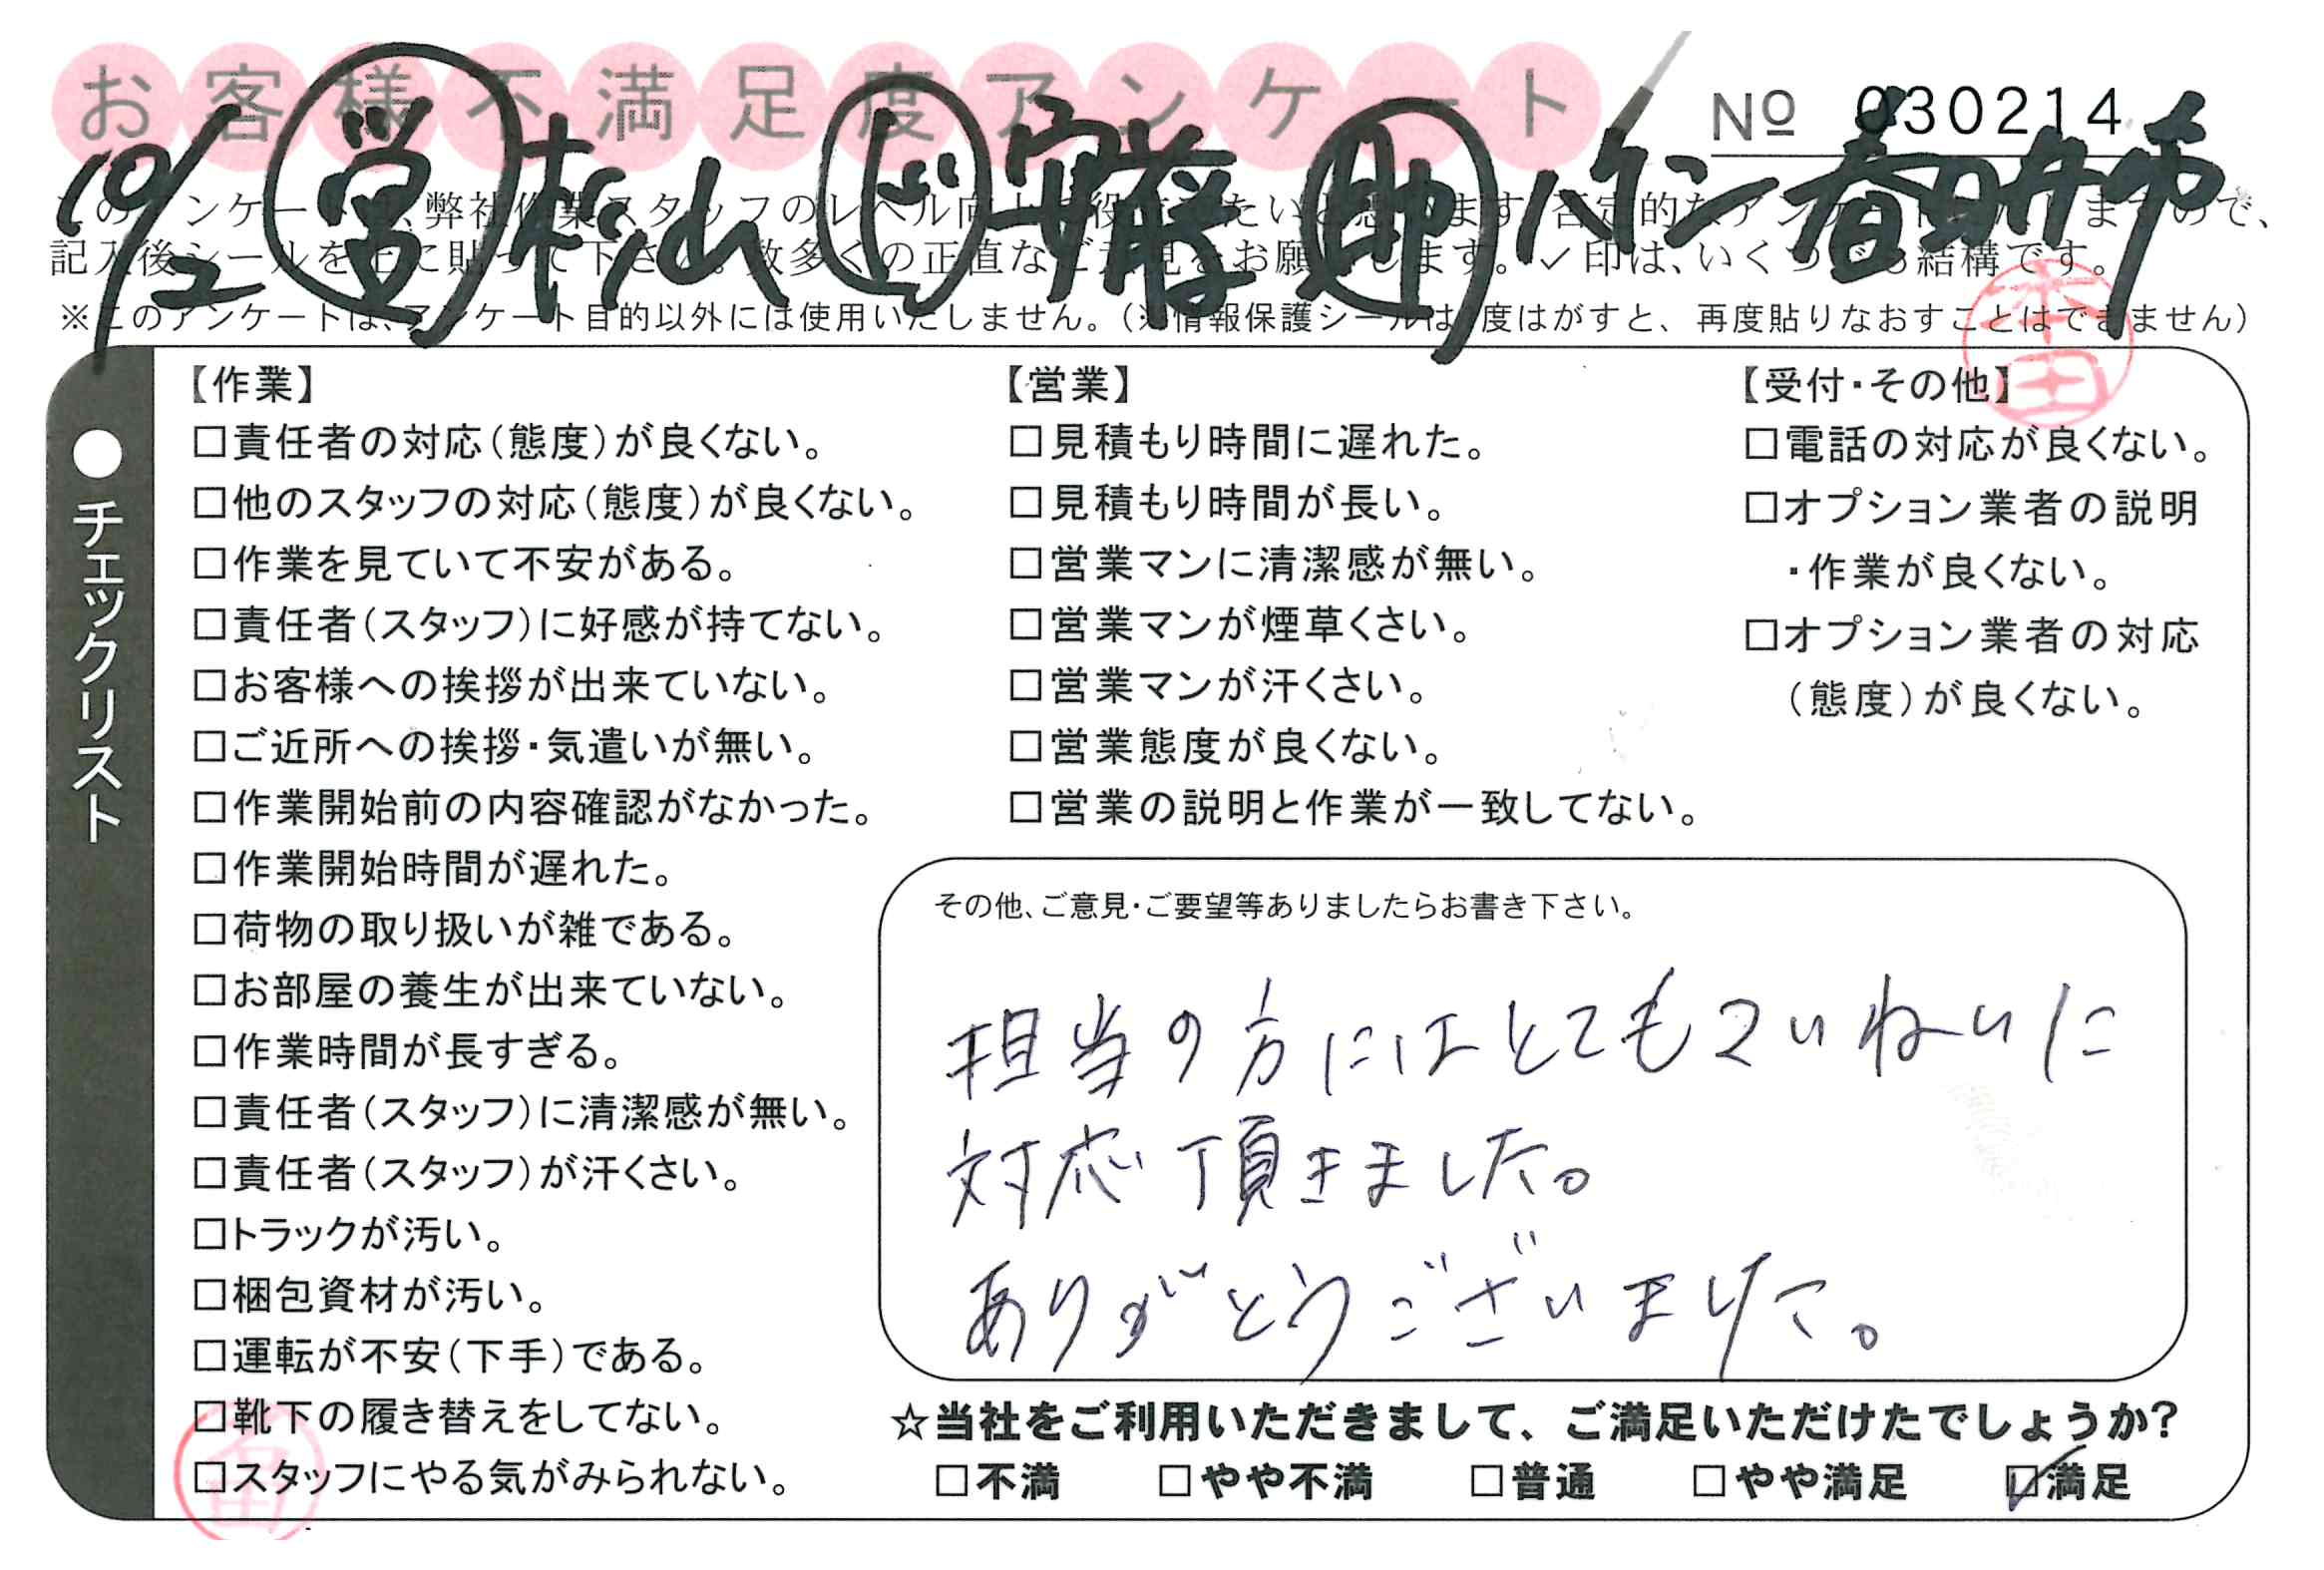 お客様不満足度アンケート
№ 030214
10/2 営 松山 ド 安藤 助 バイン 春日井市
このアンケートは、弊社作業スタッフのレベル向上に役立てたいと思います。否定的なアンケートになりますので、
記入後シールを上に貼って下さい。数多くの正直なご意見をお願いします。✓印は、いくつでも結構です。
※このアンケートは、アンケート目的以外には使用いたしません。(※情報保護シールは1度はがすと、再度貼りなおすことはできません)
●チェックリスト
【作業】
□責任者の対応(態度)が良くない。
□他のスタッフの対応(態度)が良くない。
□作業を見ていて不安がある。
□責任者(スタッフ)に好感が持てない。
□お客様への挨拶が出来ていない。
□ご近所への挨拶・気遣いが無い。
□作業開始前の内容確認がなかった。
□作業開始時間が遅れた。
□荷物の取り扱いが雑である。
□お部屋の養生が出来ていない。
□作業時間が長すぎる。
□責任者(スタッフ)に清潔感が無い。
□責任者(スタッフ)が汗くさい。
□トラックが汚い。
□梱包資材が汚い。
□運転が不安(下手)である。
□靴下の履き替えをしてない。
□スタッフにやる気がみられない。
【営業】
□見積もり時間に遅れた。
□見積もり時間が長い。
□営業マンに清潔感が無い。
□営業マンが煙草くさい。
□営業マンが汗くさい。
□営業態度が良くない。
□営業の説明と作業が一致してない。
【受付・その他】
□電話の対応が良くない。
□オプション業者の説明
・作業が良くない。
□オプション業者の対応
(態度)が良くない。
その他、ご意見・ご要望等ありましたらお書き下さい。
担当の方にはとてもていねいに
対応頂きました。
ありがとうございました。
☆当社をご利用いただきまして、ご満足いただけたでしょうか?
□不満 □やや不満 □普通 □やや満足 ☑満足